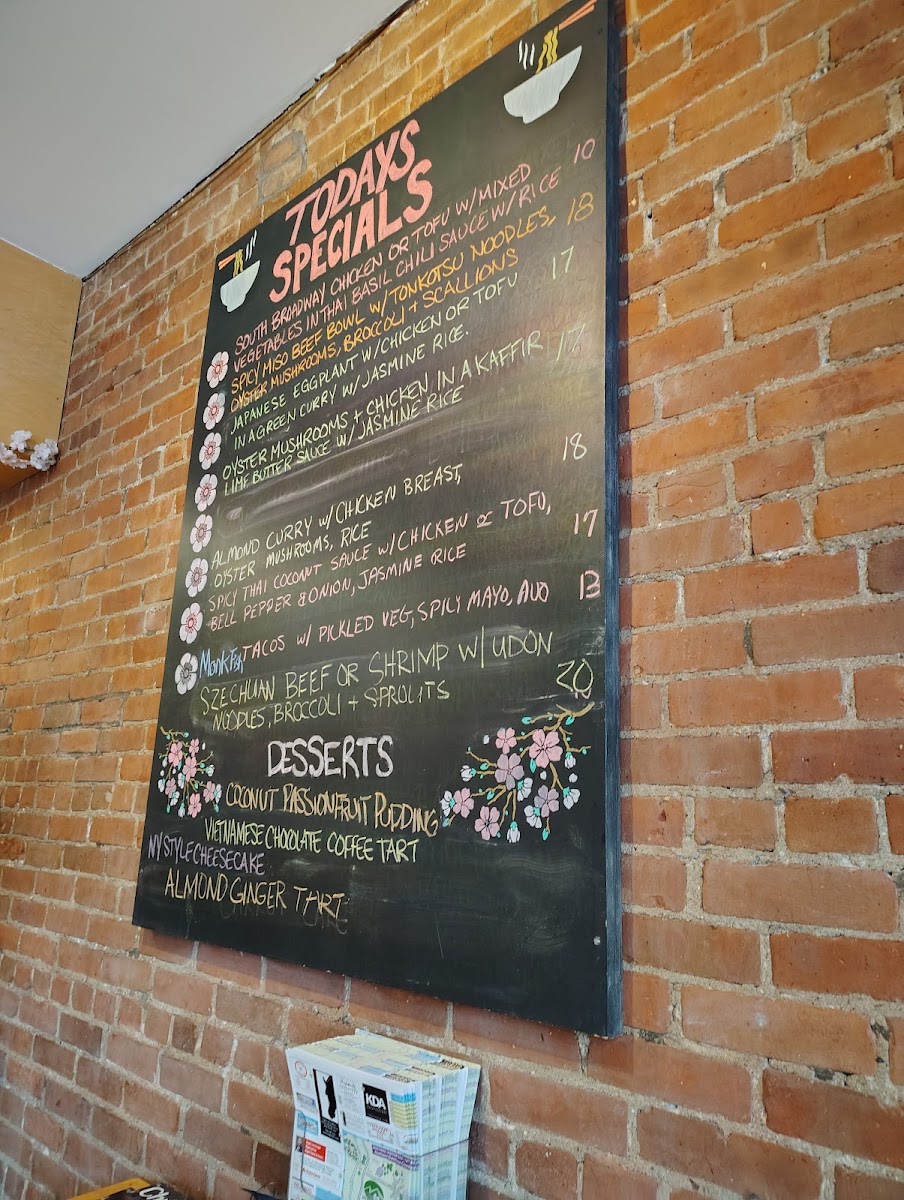 TODAYS
SPECIALS
SOUTH BROADWAY CHICKEN OR TOFU W/ MIXED
VEGETABLES IN THAI BASIL CHILI SAUCE W/ RICE 10
SPICY MISO BEEF BOWL W/ TONKOTSU NOODLES, 18
OYSTER MUSHROOMS, BROCCOLI + SCALLIONS
JAPANESE EGGPLANT W/ CHICKEN OR TOFU 17
IN A GREEN CURRY W/ JASMINE RICE.
OYSTER MUSHROOMS + CHICKEN IN A KAFFIR 17
LIME BUTTER SAUCE W/ JASMINE RICE
ALMOND CURRY W/ CHICKEN BREAST, 18
OYSTER MUSHROOMS, RICE
SPICY THAI COCONUT SAUCE W/ CHICKEN or TOFU, 17
BELL PEPPER & ONION, JASMINE RICE
Monkfish TACOS W/ PICKLED VEG, SPICY MAYO, AVO 13
SZECHUAN BEEF OR SHRIMP W/ UDON
NOODLES, BROCCOLI + SPROUTS 20
DESSERTS
COCONUT PASSIONFRUIT PUDDING
VIETNAMESE CHOCOLATE COFFEE TART
NY STYLE CHEESECAKE
ALMOND GINGER TART
KDA